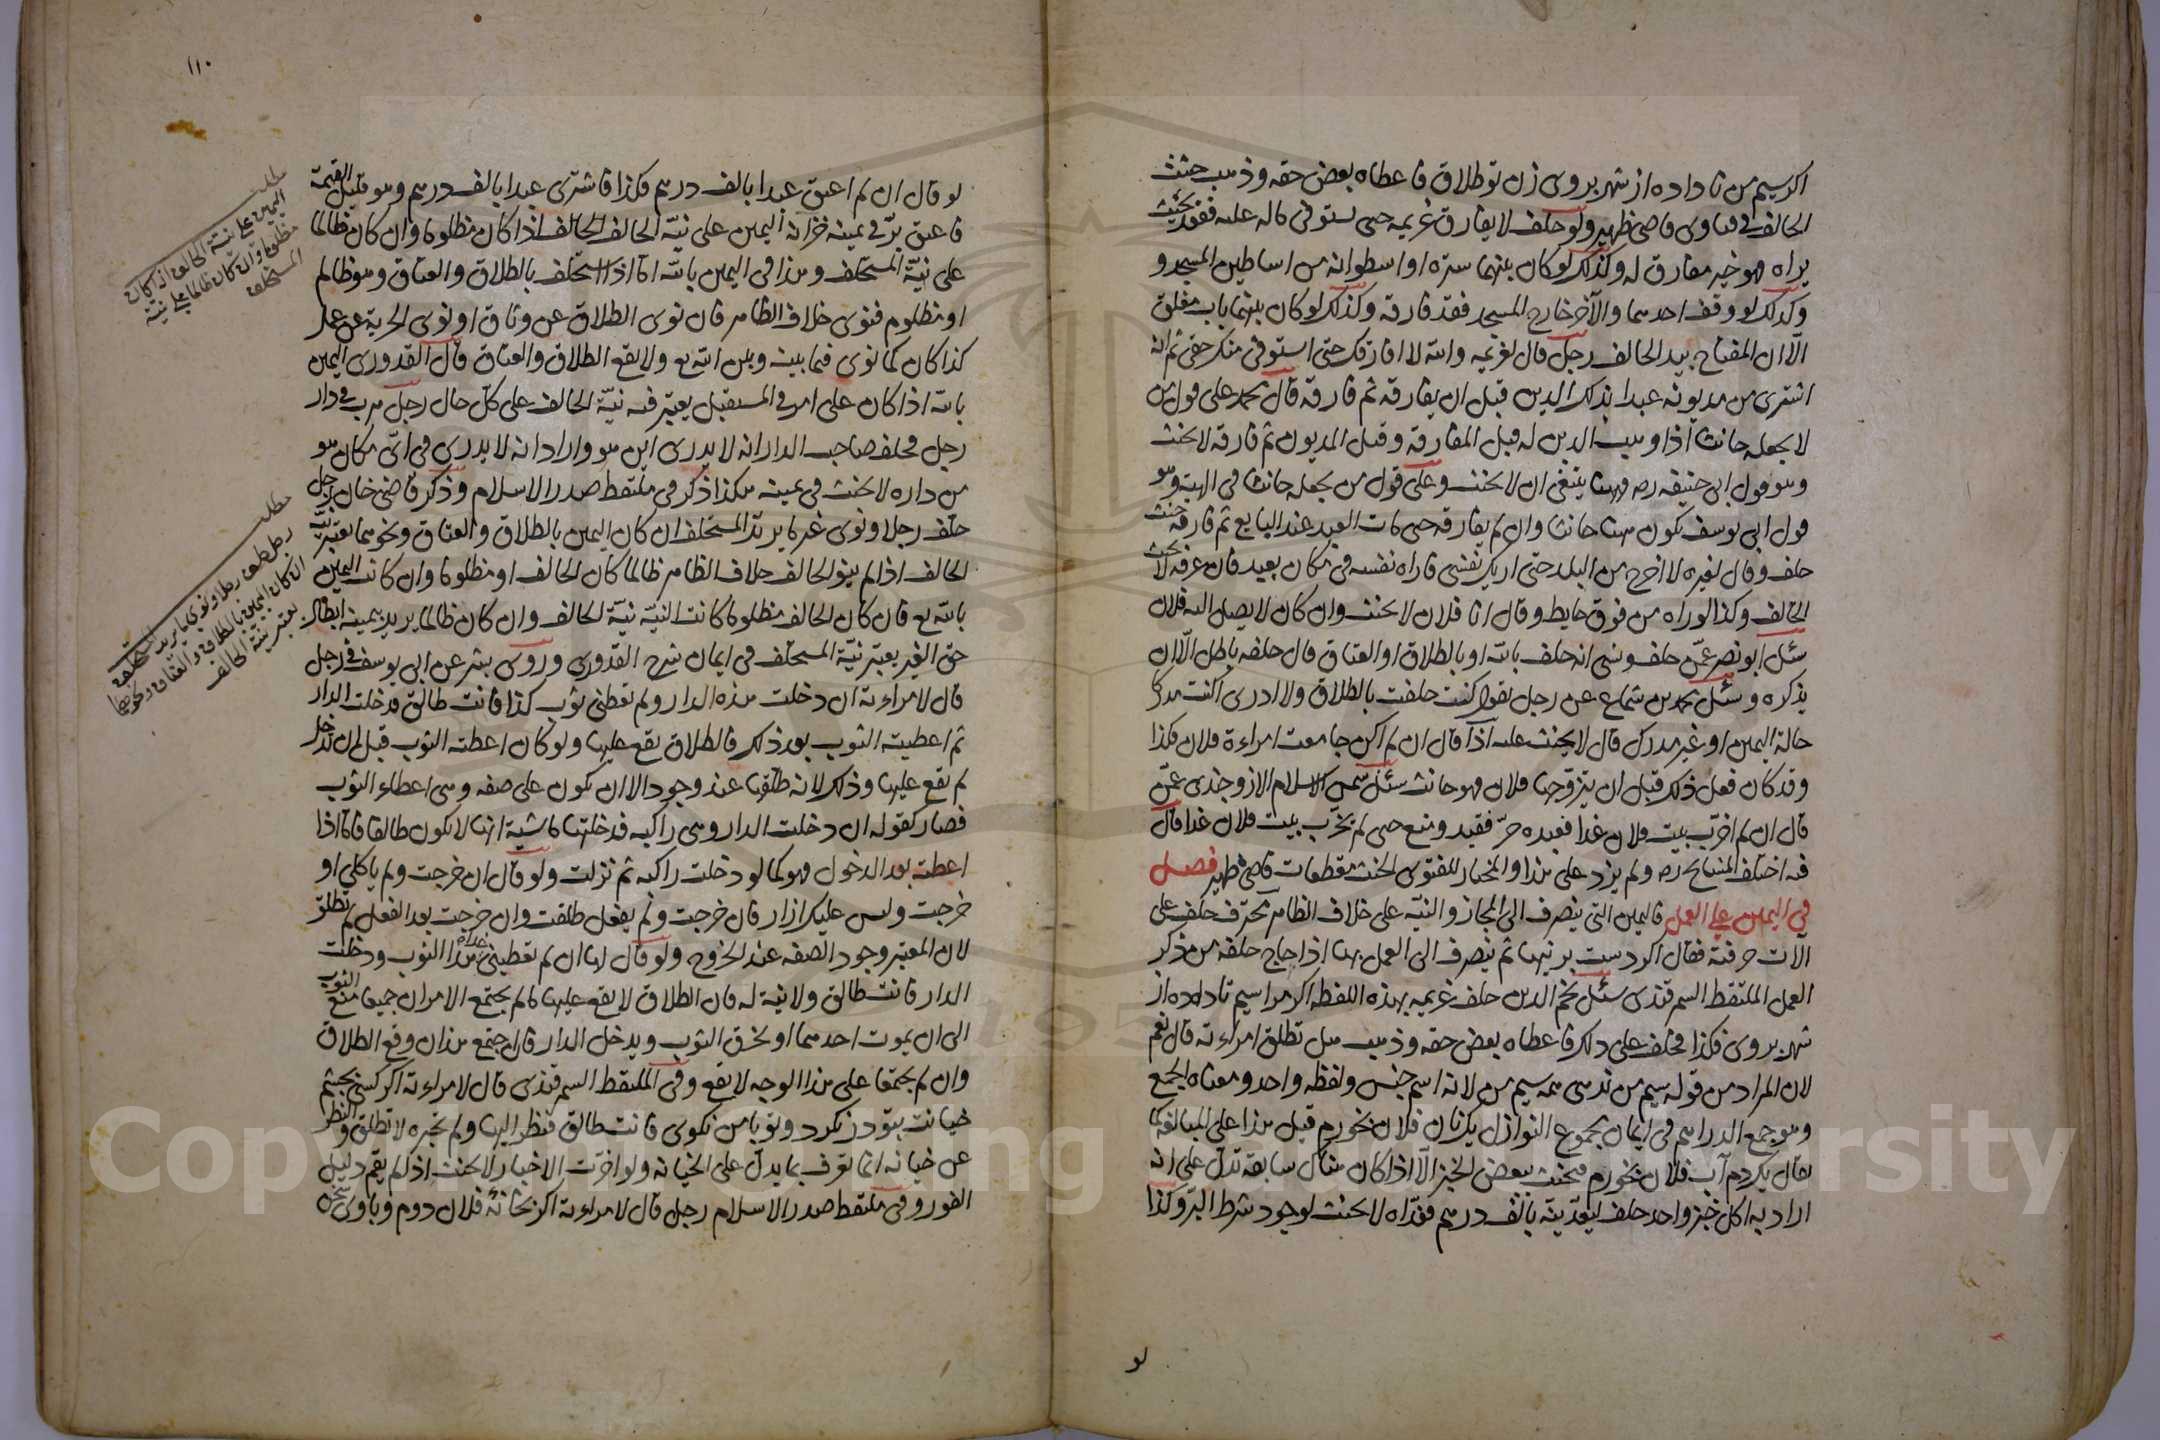 اكر سيم من نا داده از شهر بروى زن تو طلاق فاعطاه بعض حقه وذهب حنث
الحالف فى فتاوى قاضى ظهير ولو حلف لا يفارق غريمه حتى يستوفى ماله عليه فقعد بحيث
يراه فهو غير مفارق له وكذلك لو كان بينهما سترة او اسطوانة من اساطين المسجد و
وكذلك لو وقف احدهما والآخر خارج المسجد فقد فارقه وكذلك لو كان بينهما باب مغلق
الّا ان المفتاح بيد الحالف رجل قال لغريمه والله لا افارقك حتى استوفى منك حقى ثم انه
اشترى من مديونه عبدا بذلك الدين قبل ان يفارقه ثم فارقه قال محمد على قول من
لا يجعله حانثا اذا وهب الدين له قبل المفارقة وقبل المديون ثم فارقه لا يحنث
وهو قول ابى حنيفه رح فههنا ينبغى ان لا يحنث وعلى قول من يجعله حانثا فى الهبة وهو
قول ابى يوسف يكون ههنا حانثا وان لم يفارقه حتى مات العبد عند البايع ثم فارقه حنث
حلف وقال لغيره لا اخرج من البلد حتى اريك نفسى فاراه نفسه فى مكان بعيد فان عرفه لا يحنث
الحالف وكذا لو راه من فوق حايط وقال انا فلان لا يحنث وان كان لا يصل اليه فلان
سئل ابو نصر عمّن حلف ونسى انه حلف بالله او بالطلاق او العتاق قال حلفه باطل الّا ان
يذكره وسئل محمد بن شجاع عن رجل يقول كنت حلفت بالطلاق ولا ادرى اكنت مدركا
حالة اليمين او غير مدرك قال لا يحنث عليه اذا قال ان لم اكن جامعت امراءة فلان فكذا
وقد كان فعل ذلك قبل ان يتزوجها فلان فهو حانث سئل شمس الاسلام الاوزجندى عمّن
قال ان لم اخرّب بيت فلان غدا فعبده حرّ فقيد ومنع حتى لم يخرّب بيت فلان غدا قال
فيه اختلف المشايخ رح ولم يزد على هذا والمختار للفتوى الحنث مقطعات قاضى ظهير فصل
فى اليمين على العمل فاليمين التى ينصرف الى المجاز والنيّة على خلاف الظاهر محترف حلف على
آلات حرفته فقال اكر دست بر نهما ثم ينصرف الى العمل بها اذا حلفه من ذكر
العمل الملتقط السمرقندى سئل نجم الدين حلف غريمه بهذه اللفظة اكر مرا سيم نا داده از
شهر بروى فكذا فحلف على ذلك فاعطاه بعض حقه وذهب هل تطلق امراءته قال نعم
لان المراد من قوله سيم من ندهى همه سيم من لانه اسم جنس ولفظه واحد ومعناه الجمع
وهو جمع الدراهم فى ايمان مجموع النوازل يك نان فلان نخورم قيل هذا على المبالغة كما
يقال يكدم آب فلان نخورم فيحنث ببعض الخبز الّا اذا كان هناك سابقة تدل على انه
اراد به اكل خبز واحد حلف ليغدّينه بالف درهم فغدّاه لا يحنث لوجود شرط البرّ وكذا
لو
١١٠
لو قال ان لم اعتق عبدا بالف درهم فكذا فاشترى عبدا بالف درهم وهو قليل القيمة
فاعتق برّ فى يمينه خزانه اليمين على نيّة الحالف اذا كان مظلوما وان كان ظالما
على نيّة المستحلف وهذا فى اليمين بالله امّا اذا استحلف بالطلاق والعتاق وهو ظالم
او مظلوم فنوى خلاف الظاهر فان نوى الطلاق عن وثاق او نوى الحرية عن عمل
كذا كان كما نوى فيما بينه وبين الله تع ولا يقع الطلاق والعتاق قال القدورى اليمين
بالله اذا كان على امر فى المستقبل يعتبر فيه نيّة الحالف على كل حال رجل هرب فى دار
رجل فحلف صاحب الدار انه لا يدرى اين هو واراد انه لا يدرى فى اىّ مكان هو
من داره لا يحنث فى يمينه هكذا ذكر فى ملتقط صدر الاسلام وذكر قاضى خان رجل
حلف رجلا ونوى غير ما يريد المستحلف ان كان اليمين بالطلاق والعتاق ونحوهما يعتبر نيّة
الحالف اذا لم ينو الحالف خلاف الظاهر ظالما كان الحالف او مظلوما وان كانت اليمين
بالله تع فان كان الحالف مظلوما كانت النيّة نيّة الحالف وان كان ظالما يريد بيمينه ابطال
حق الغير يعتبر نيّة المستحلف فى ايمان شرح القدورى وروى بشر عن ابى يوسف فى رجل
قال لامراءته ان دخلت هذه الدار ولم تعطنى ثوب كذا فانت طالق فدخلت الدار
ثم اعطيته الثوب بعد ذلك فالطلاق يقع عليها ولو كان اعطته الثوب قبل ان تدخل
لم يقع عليها وذلك لانه طلّقها عند وجود الا ان يكون على صفه وهى اعطاء الثوب
فصار كقوله ان دخلت الدار وهى راكبه فدخلتها ماشية انها لا يكون طالقا فامّا اذا
اعطته بعد الدخول فهو كما لو دخلت راكبه ثم نزلت ولو قال ان خرجت ولم ياكلى او
خرجت وليس عليك ازار فان خرجت ولم يفعل طلقت وان خرجت بعد الفعل لم تطلق
لان المعتبر وجود الصفه عند الخروج ولو قال لها ان لم تعطينى هذا الثوب ودخلت
الدار فانت طالق ولا نية له فان الطلاق لا يقع عليها ما لم يجتمع الامران جميعا منع الثوب
الى ان يموت احدهما او يخرق الثوب ويدخل الدار فان اجتمع هذان وقع الطلاق
وان لم يجتمعا على هذا الوجه لا يقع وفى الملتقط السمرقندى قال لامراءته اكر كسى بچشم
خيانت بتو در نكرد وتو با من نكوى فانت طالق فنظر اليها ولم تخبره لا تطلق والنظر
عن خيانه انما يعرف بما يدلّ على الخيانه ولو اخرت الاخبار لا يحنث اذ لم يقم دليل
الفور وفى ملتقط صدر الاسلام رجل قال لامراءته اكر بخانه فلان دوم وبا وى سخن
مطلب
اليمين على نيّة الحالف اذا كان
مظلوما وان كان ظالما على نيّة
المستحلف
مطلب
رجل حلف رجلا ونوى ما يريد المستحلف
ان كان اليمين بالطلاق والعتاق ونحوهما
يعتبر نيّة الحالف
Copyright © King Saud University